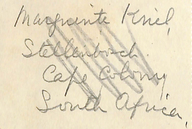 Marguerite Kriel,
Stellenbosch.
Cape Colony
South Africa,